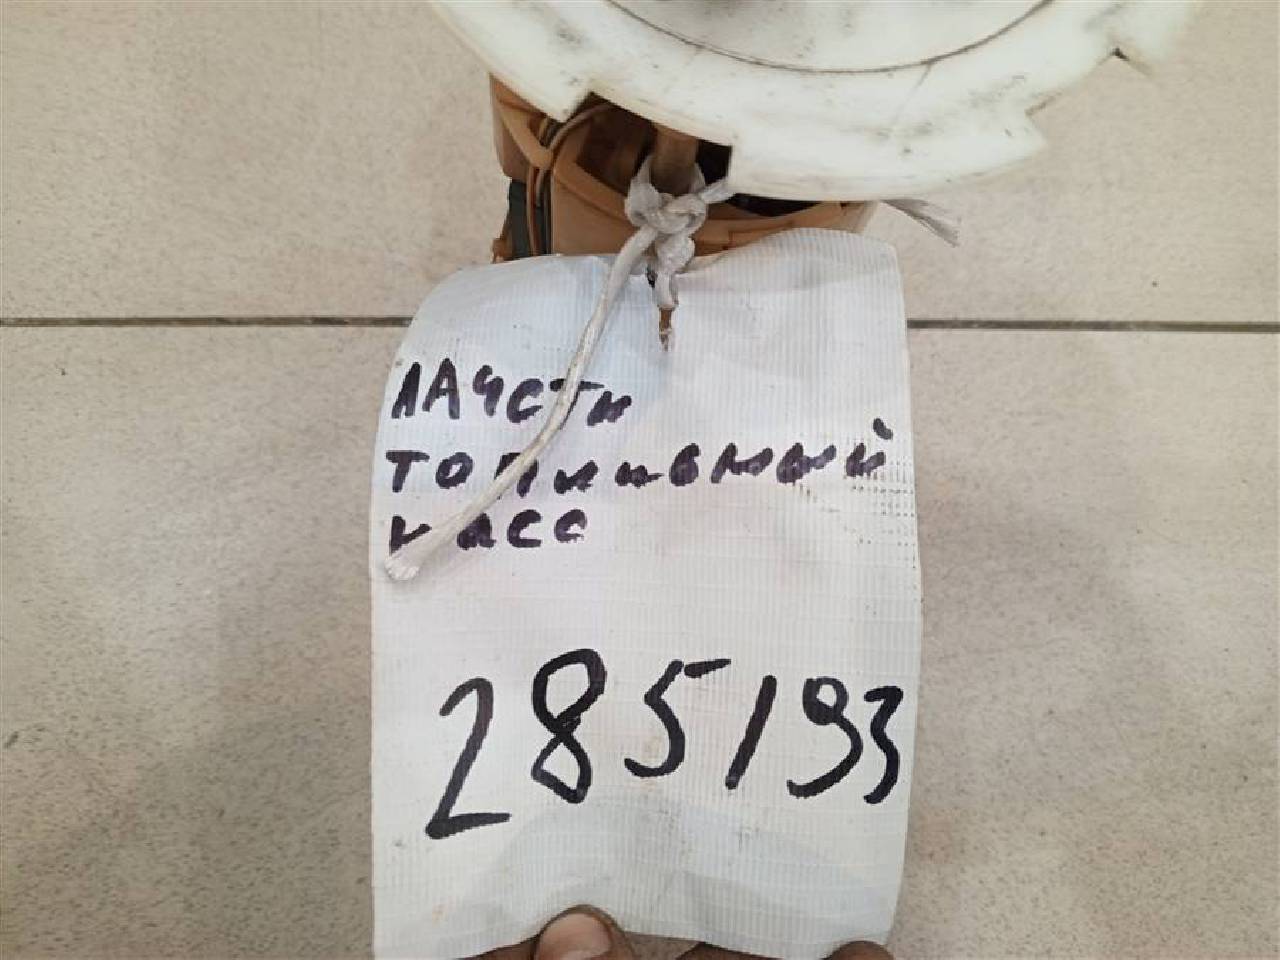 ЛАЧСТИ
ТОПЛИВНЫЙ
НАСС
285193